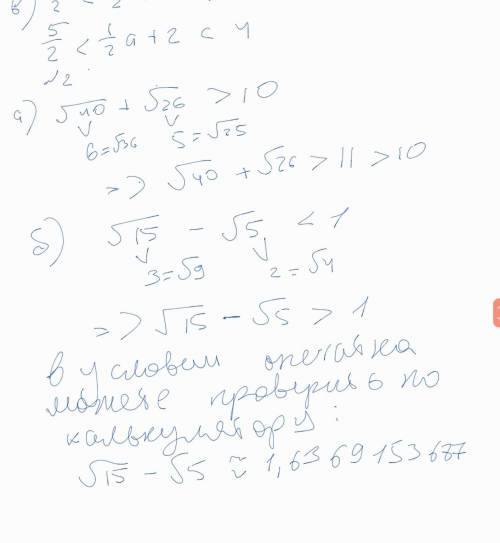 в) 2 2
5/2 < 1/2 a + 2 < 4
№2.
а) √40 + √26 > 10
∨ ∨
6=√36 5=√25
=> √40 + √26 > 11 > 10
б) √15 - √5 < 1
∨ ∨
3=√9 2=√4
=> √15 - √5 > 1
в условии опечатка
можете проверить по
калькулятору:
√15 - √5 ≈ 1,6369153687